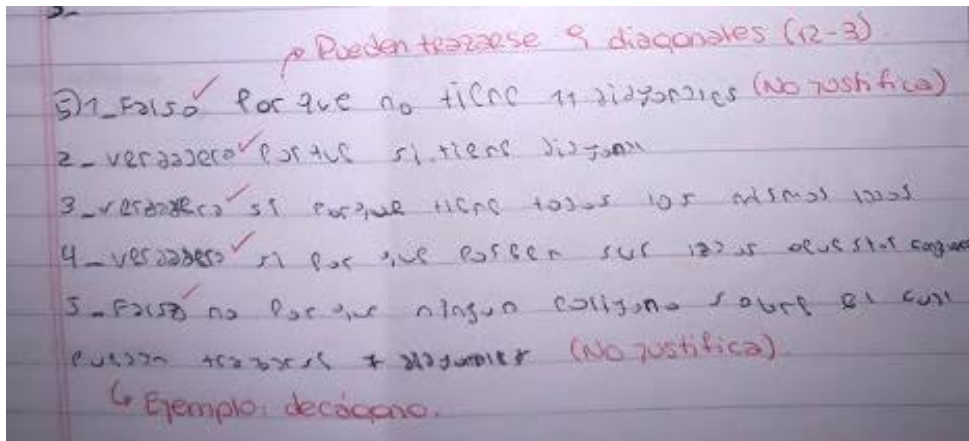 Pueden trazarse 9 diagonales (12-3).
5) 1_ Falso Por que no tiene 11 diagonales (No justifica)
2_ verdadero Porque si tiene
3_ verdadero si porque tiene todos los mismos lados
4_ verdadero si por que poseen sus lados opuestos
5_ Falso no Por que ningun poligono sobre el cual
puedan (No justifica)
Ejemplo: decágono.